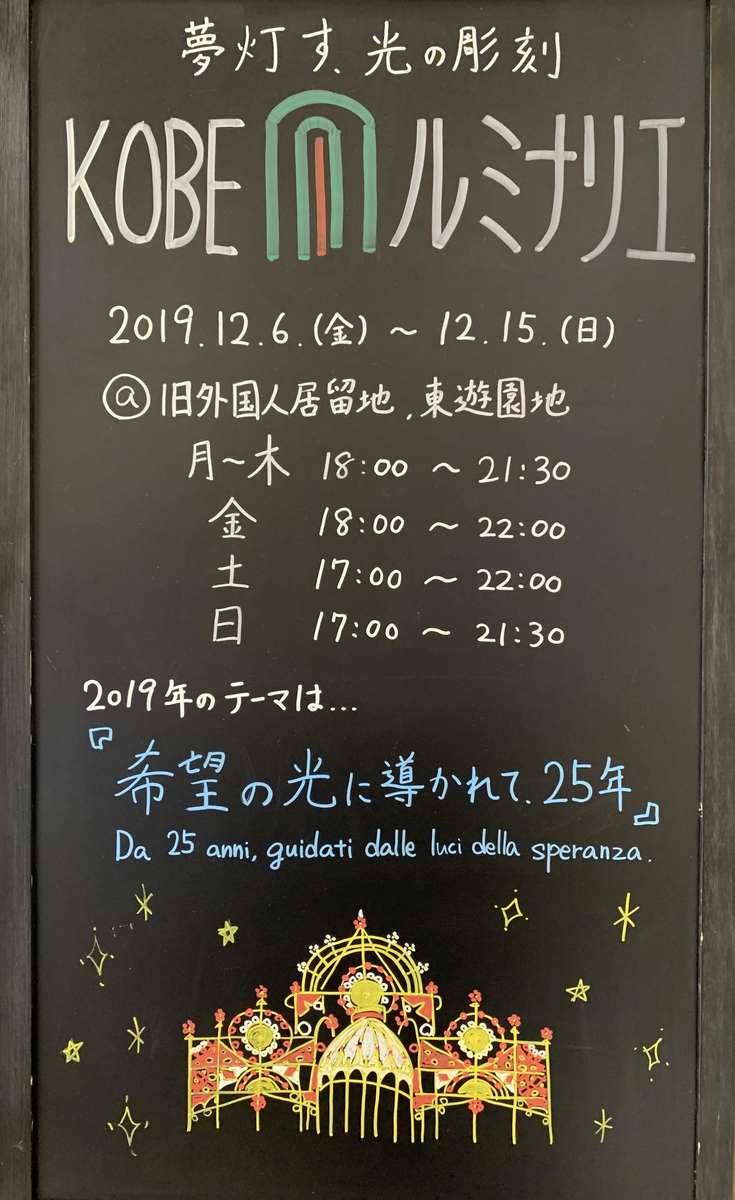 夢灯す、光の彫刻
KOBE ルミナリエ
2019.12.6.(金) ～ 12.15.(日)
@旧外国人居留地,東遊園地
月～木 18:00 ～ 21:30
金 18:00 ～ 22:00
土 17:00 ～ 22:00
日 17:00 ～ 21:30
2019年のテーマは...
『希望の光に導かれて、25年』
Da 25 anni, guidati dalle luci della speranza.